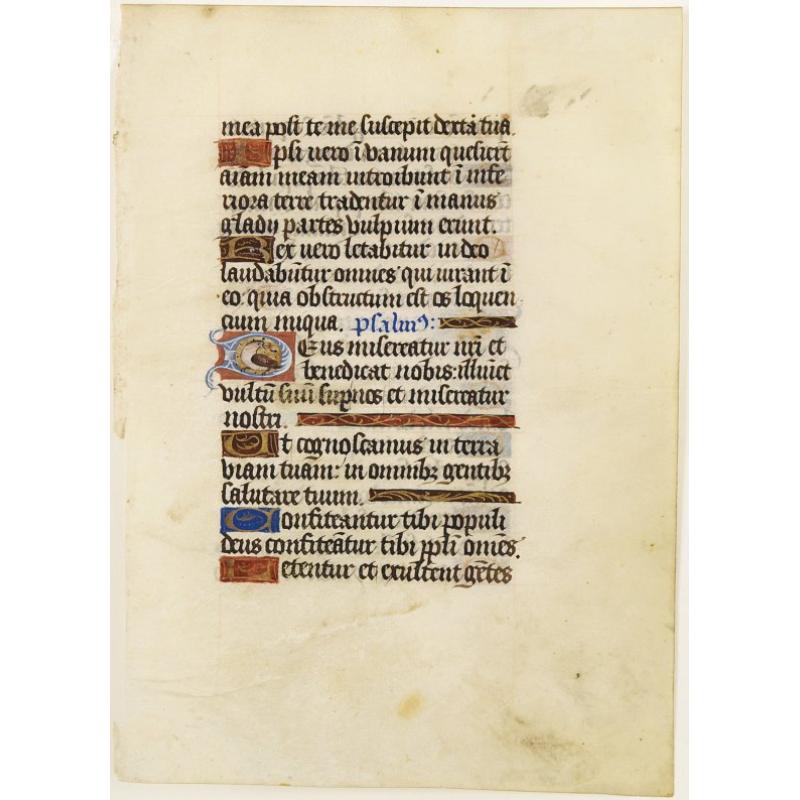 mea post te me suscepit dextā tua.
Ipsi uero ī vanum quesierūt
aīam meam introibunt ī infe
riora terre tradentur ī manus
gladij partes vulpium erunt.
Rex uero letabitur in deo
laudabūtur omnes qui iurant ī
eo quia obstructum est os loquen
cium iniqua. psalmꝰ:
Deus misereatur nr̄i et
benedicat nobis: illuīet
vultū suū supnos et misereatur
nostri.
Ut cognoscamus in terra
viam tuam: in omnibꝫ gentibꝫ
salutare tuum.
Confiteantur tibi populi
deus confiteātur tibi ppl̄i om̄es.
Letentur et exultent gētes